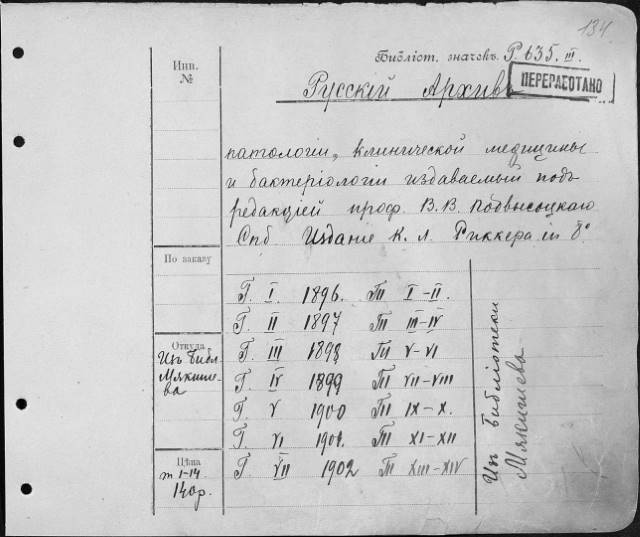 134
Инв. №
Библіот. значокъ. Р. 635. III.
ПЕРЕРАБОТАНО
Русскій Архивъ
патологіи, клинической медицины
и бактеріологіи издаваемый подъ
редакціей проф. В. В. Подвысоцкаго
Спб Изданіе К. Л. Риккера in 8°
По заказу
Г. I. 1896. Тт I–II.
Г. II 1897 Тт III–IV
Г. III 1898 Тт V–VI
Г. IV 1899 Тт VII–VIII
Г. V 1900 Тт IX–X.
Г. VI 1901. Тт XI–XII
Г. VII 1902 Тт XIII–XIV
Откуда
Изъ Библ.
Мякише-
ва
Цѣна
т 1-14.
140р.
Изъ библіотеки
Мякишева